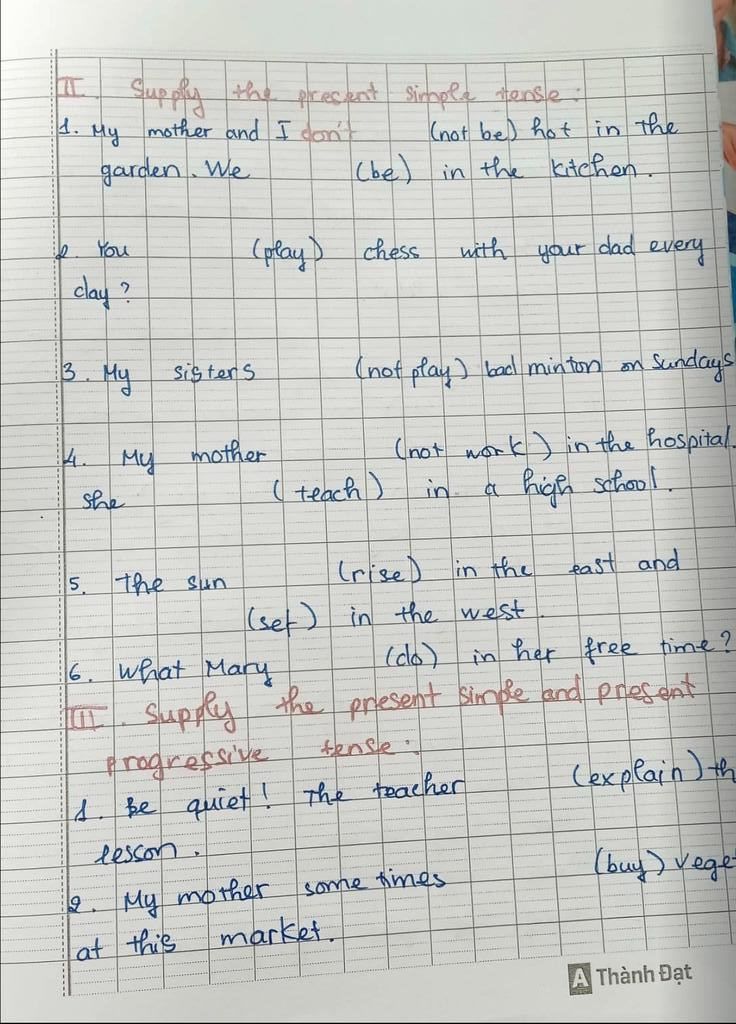 II. Supply the present simple tense:
1. My mother and I don't (not be) hot in the
garden. We (be) in the kitchen.
2. You (play) chess with your dad every
day?
3. My sisters (not play) bad minton on Sundays
4. My mother (not work) in the hospital.
she (teach) in a high school.
5. the sun (rise) in the east and
(set) in the west.
6. What Mary (do) in her free time?
III. Supply the present simple and present
progressive tense:
1. Be quiet! The teacher (explain) th
lesson.
2. My mother some times (buy) vege
at this market.
A Thành Đạt